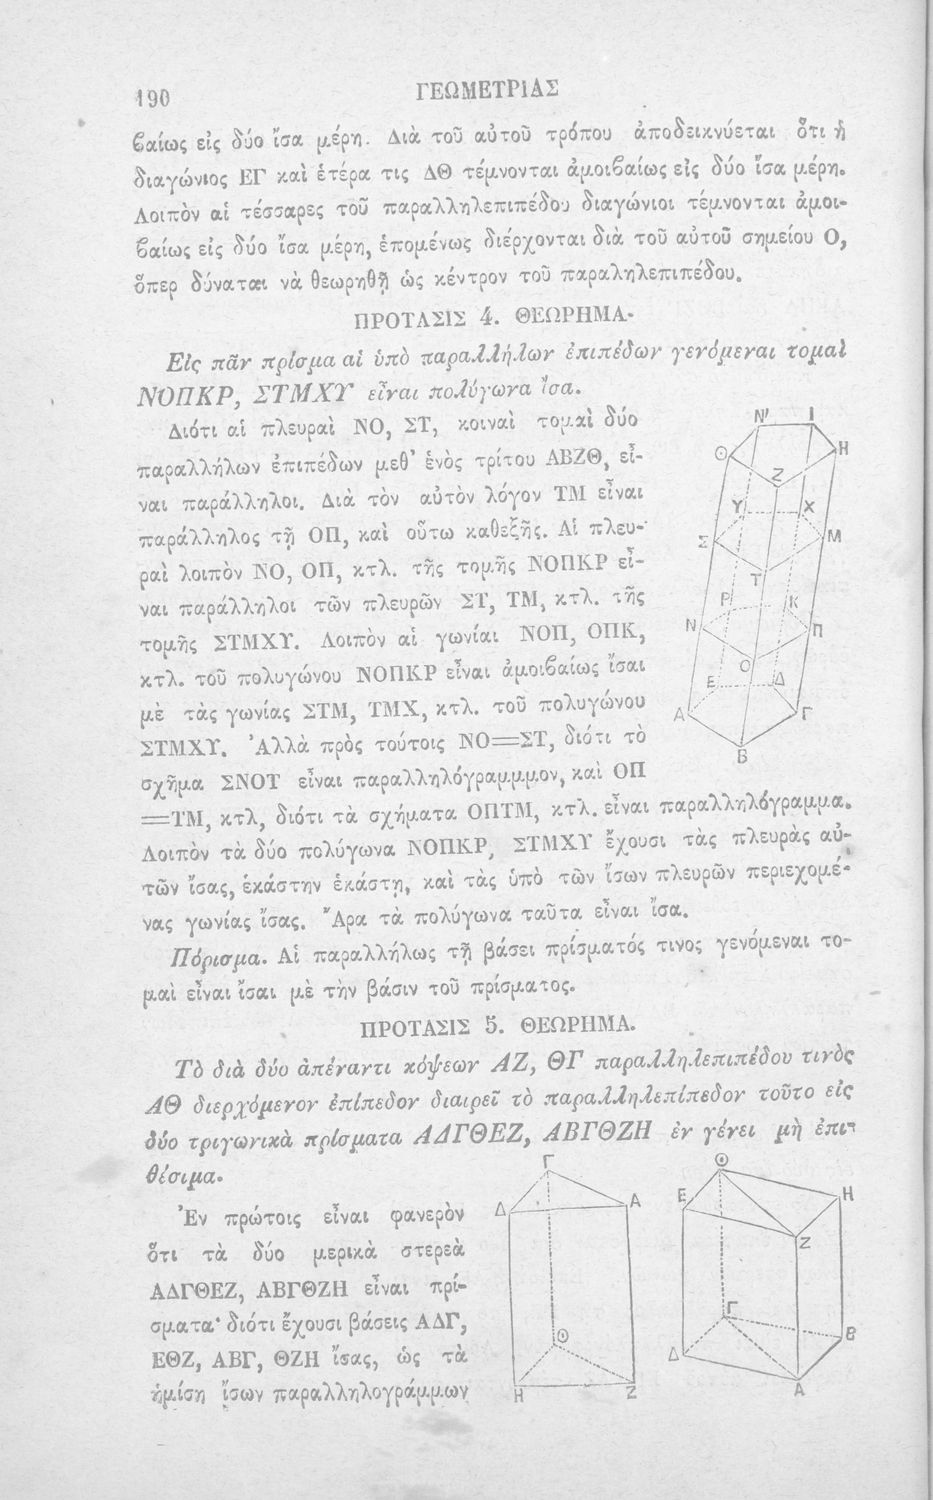 190
ΓΕΩΜΕΤΡΙΑΣ
βαίως εἰς δύο ἴσα μέρη. Διὰ τοῦ αὐτοῦ τρόπου ἀποδεικνύεται ὅτι ἡ
διαγώνιος ΕΓ καὶ ἑτέρα τις ΔΘ τέμνονται ἀμοιβαίως εἰς δύο ἴσα μέρη.
Λοιπὸν αἱ τέσσαρες τοῦ παραλληλεπιπέδου διαγώνιοι τέμνονται ἀμοι-
βαίως εἰς δύο ἴσα μέρη, ἑπομένως διέρχονται διὰ τοῦ αὐτοῦ σημείου Ο,
ὅπερ δύναται νὰ θεωρηθῇ ὡς κέντρον τοῦ παραληλεπιπέδου.
ΠΡΟΤΑΣΙΣ 4. ΘΕΩΡΗΜΑ.
Εἰς πᾶν πρίσμα αἱ ὑπὸ παραλλήλων ἐπιπέδων γενόμεναι τομαὶ
ΝΟΠΚΡ, ΣΤΜΧΥ εἶναι πολύγωνα ἴσα.
Διότι αἱ πλευραὶ ΝΟ, ΣΤ, κοιναὶ τομαὶ δύο
παραλλήλων ἐπιπέδων μεθ' ἑνὸς τρίτου ΑΒΖΘ, εἶ-
ναι παράλληλοι. Διὰ τὸν αὐτὸν λόγον ΤΜ εἶναι
παράλληλος τῇ ΟΠ, καὶ οὕτω καθεξῆς. Αἱ πλευ-
ραὶ λοιπὸν ΝΟ, ΟΠ, κτλ. τῆς τομῆς ΝΟΠΚΡ εἶ-
ναι παράλληλοι τῶν πλευρῶν ΣΤ, ΤΜ, κτλ. τῆς
τομῆς ΣΤΜΧΥ. Λοιπὸν αἱ γωνίαι ΝΟΠ, ΟΠΚ,
κτλ. τοῦ πολυγώνου ΝΟΠΚΡ εἶναι ἀμοιβαίως ἴσαι
μὲ τὰς γωνίας ΣΤΜ, ΤΜΧ, κτλ. τοῦ πολυγώνου
ΣΤΜΧΥ. Ἀλλὰ πρὸς τούτοις ΝΟ=ΣΤ, διότι τὸ
σχῆμα ΣΝΟΤ εἶναι παραλληλόγραμμμον, καὶ ΟΠ
=ΤΜ, κτλ, διότι τὰ σχήματα ΟΠΤΜ, κτλ. εἶναι παραλληλόγραμμα.
Λοιπὸν τὰ δύο πολύγωνα ΝΟΠΚΡ, ΣΤΜΧΥ ἔχουσι τὰς πλευρὰς αὐ-
τῶν ἴσας, ἑκάστην ἑκάστῃ, καὶ τὰς ὑπὸ τῶν ἴσων πλευρῶν περιεχομέ-
νας γωνίας ἴσας. Ἄρα τὰ πολύγωνα ταῦτα εἶναι ἴσα.
Πόρισμα. Αἱ παραλλήλως τῇ βάσει πρίσματός τινος γενόμεναι το-
μαὶ εἶναι ἴσαι μὲ τὴν βάσιν τοῦ πρίσματος.
ΠΡΟΤΑΣΙΣ 5. ΘΕΩΡΗΜΑ.
Τὸ διὰ δύο ἀπέναντι κόψεων ΑΖ, ΘΓ παραλληλεπιπέδου τινὸς
ΑΘ διερχόμενον ἐπίπεδον διαιρεῖ τὸ παραλληλεπίπεδον τοῦτο εἰς
δύο τριγωνικὰ πρίσματα ΑΔΓΘΕΖ, ΑΒΓΘΖΗ ἐν γένει μὴ ἐπι-
θέσιμα.
Ἐν πρώτοις εἶναι φανερὸν
ὅτι τὰ δύο μερικὰ στερεὰ
ΑΔΓΘΕΖ, ΑΒΓΘΖΗ εἶναι πρί-
σματα· διότι ἔχουσι βάσεις ΑΔΓ,
ΕΘΖ, ΑΒΓ, ΘΖΗ ἴσας, ὡς τὰ
ἡμίση ἴσων παραλληλογράμμων
Ν' Ι
Θ Η
Ζ
Υ Χ
Σ Μ
Τ
Ρ Κ
Ν Π
Ο
Ε Δ
Α Γ
Β
Γ
Δ Α
Θ
Η Ζ
Θ
Ε Η
Ζ
Γ
Β
Δ
Α